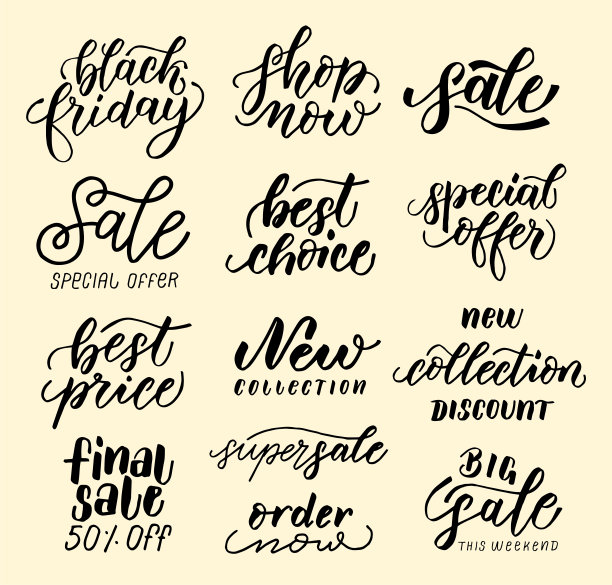 black
friday
shop
now
sale
Sale
SPECIAL OFFER
best
choice
special
offer
best
price
New
COLLECTION
new
collection
DISCOUNT
final
sale
50% Off
supersale
order
now
BIG
sale
THIS WEEKEND